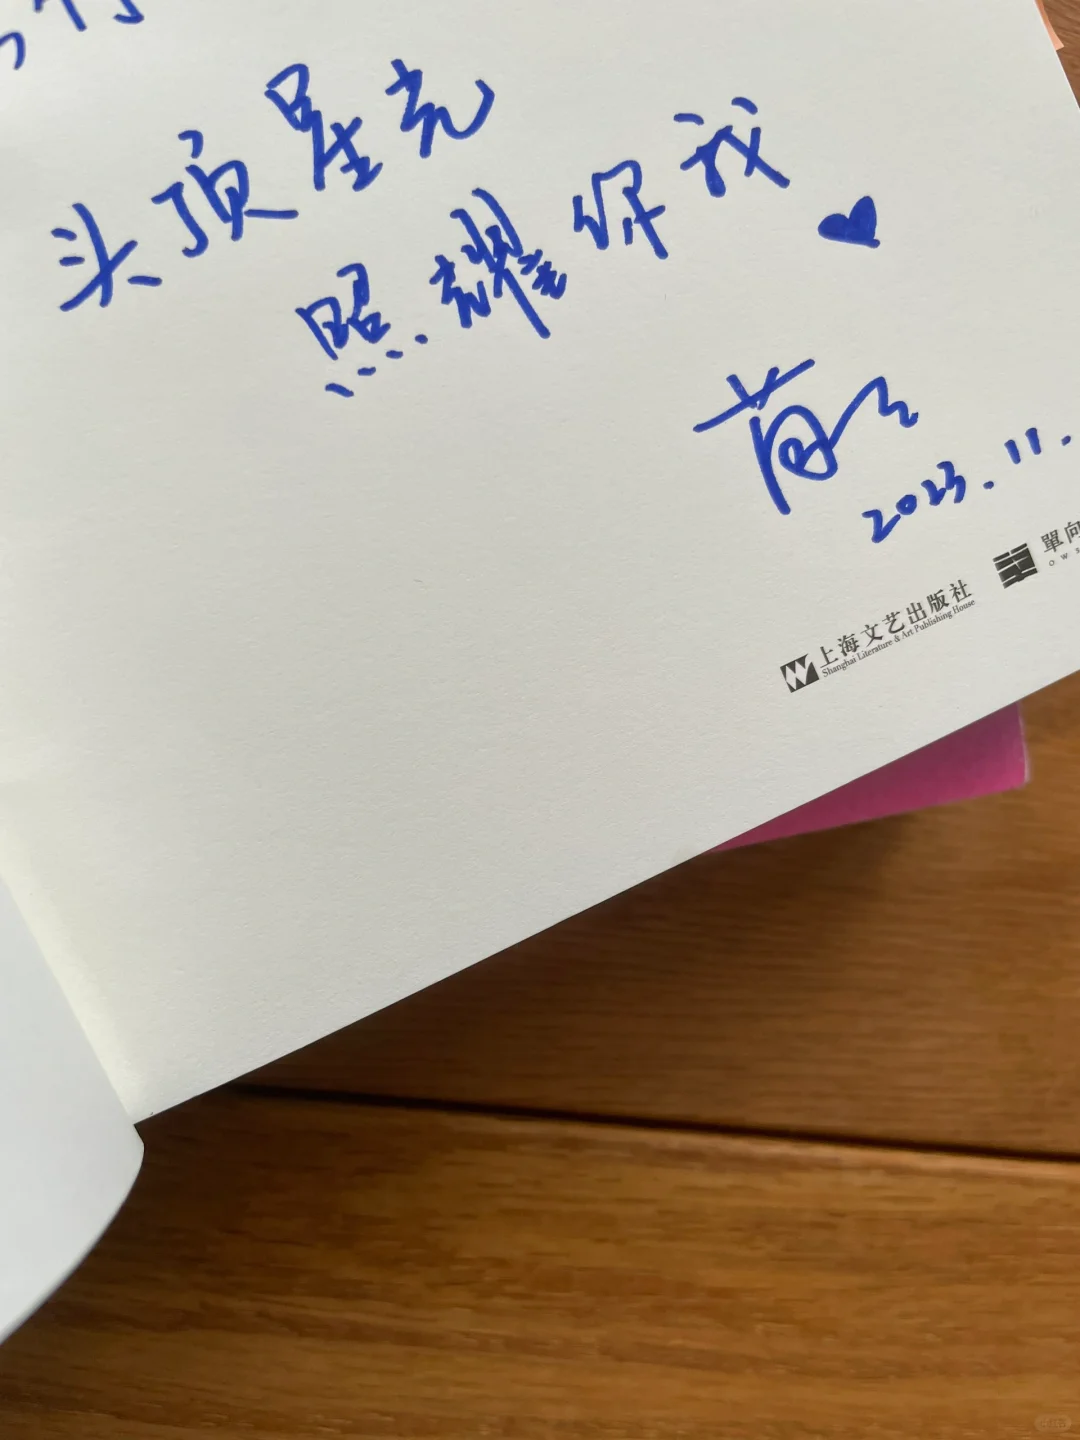 头顶星光
照耀你我
2023.11.
單向
OWS
上海文艺出版社
Shanghai Literature & Art Publishing House
小红书